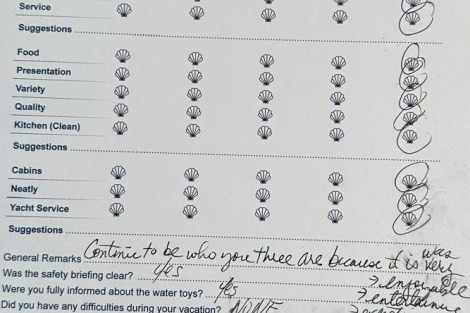 Service
Suggestions
Food
Presentation
Variety
Quality
Kitchen (Clean)
Suggestions
Cabins
Neatly
Yacht Service
Suggestions
General Remarks Continue to be who you three are because it is was very
Was the safety briefing clear? yes → enjoyable
Were you fully informed about the water toys? yes
Did you have any difficulties during your vacation? NONE